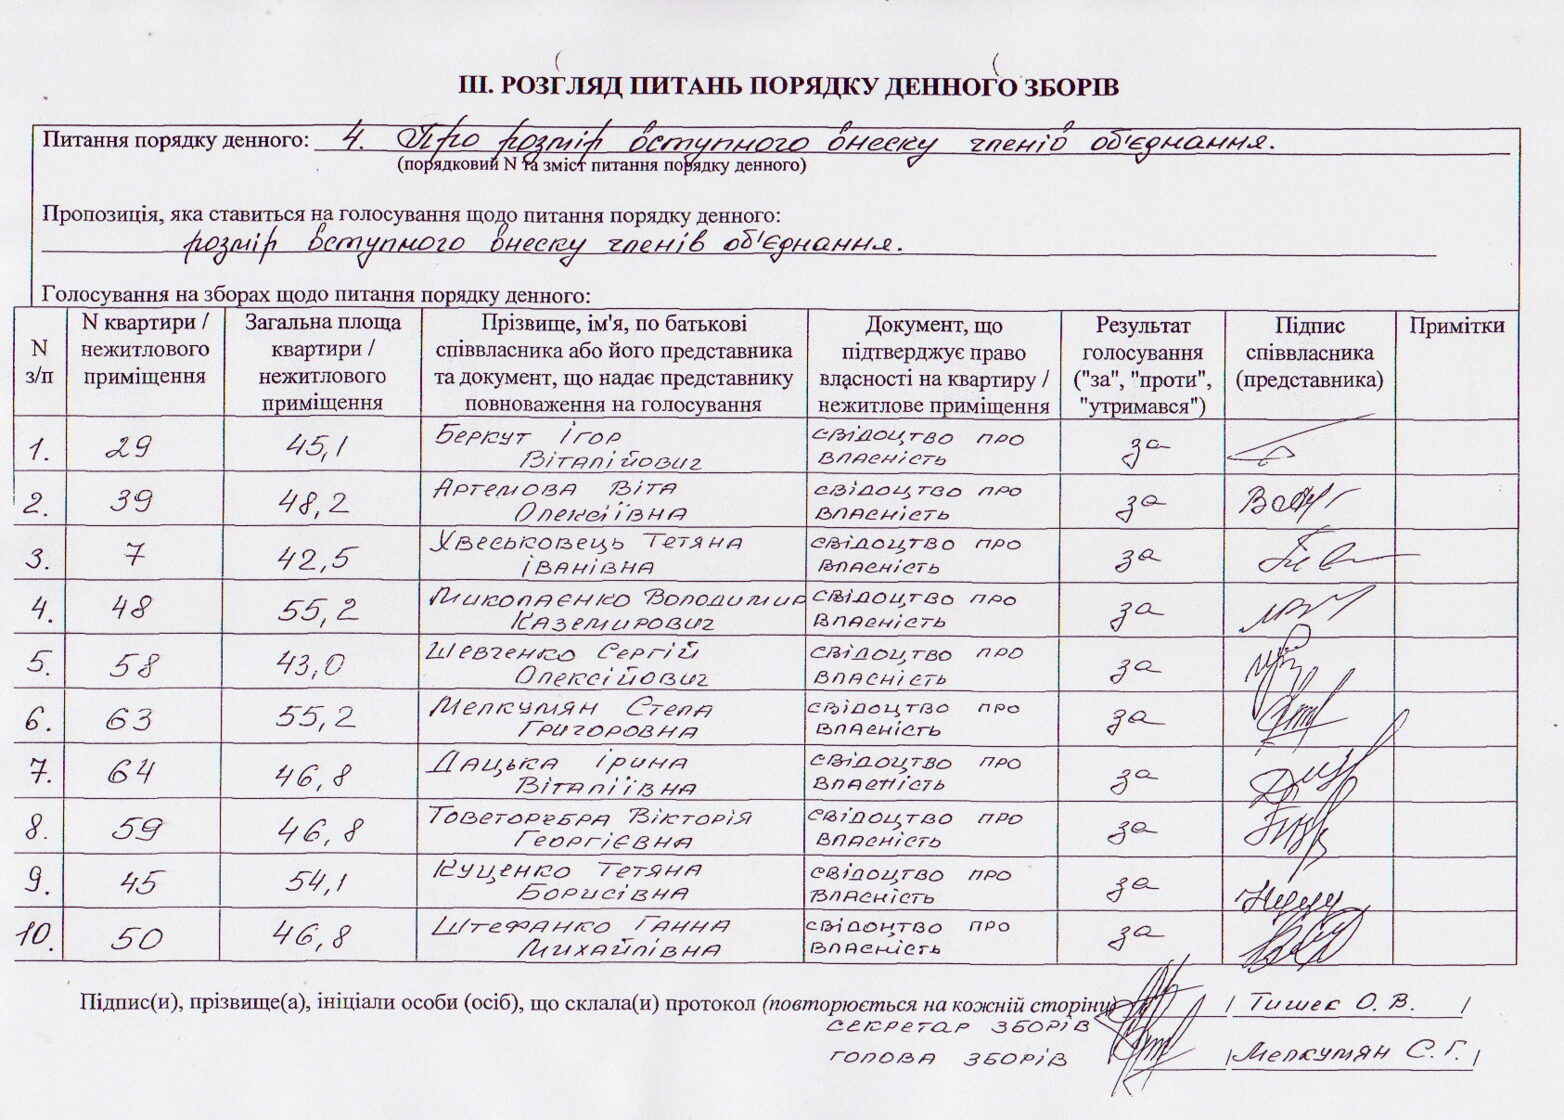 III. РОЗГЛЯД ПИТАНЬ ПОРЯДКУ ДЕННОГО ЗБОРІВ
Питання порядку денного: 4. Про розмір вступного внеску членів об'єднання.
(порядковий N та зміст питання порядку денного)
Пропозиція, яка ставиться на голосування щодо питання порядку денного:
розмір вступного внеску членів об'єднання.
Голосування на зборах щодо питання порядку денного:
N з/п
N квартири / нежитлового приміщення
Загальна площа квартири / нежитлового приміщення
Прізвище, ім'я, по батькові співвласника або його представника та документ, що надає представнику повноваження на голосування
Документ, що підтверджує право власності на квартиру / нежитлове приміщення
Результат голосування ("за", "проти", "утримався")
Підпис співвласника (представника)
Примітки
1. 29 45,1 Беркут Ігор Віталійович свідоцтво про власність за
2. 39 48,2 Артемова Віта Олексіївна свідоцтво про власність за
3. 7 42,5 Хвеськовець Тетяна Іванівна свідоцтво про власність за
4. 48 55,2 Миколаєнко Володимир Каземирович свідоцтво про власність за
5. 58 43,0 Шевченко Сергій Олексійович свідоцтво про власність за
6. 63 55,2 Мелкумян Стела Григоровна свідоцтво про власність за
7. 64 46,8 Дацька Ірина Віталіївна свідоцтво про власність за
8. 59 46,8 Вікторія Георгієвна свідоцтво про власність за
9. 45 54,1 Куценко Тетяна Борисівна свідоцтво про власність за
10. 50 46,8 Штефанко Ганна Михайлівна свідоцтво про власність за
Підпис(и), прізвище(а), ініціали особи (осіб), що склала(и) протокол (повторюється на кожній сторінці) / Тишек О. В. /
секретар зборів
голова зборів / Мелкумян С. Г. /